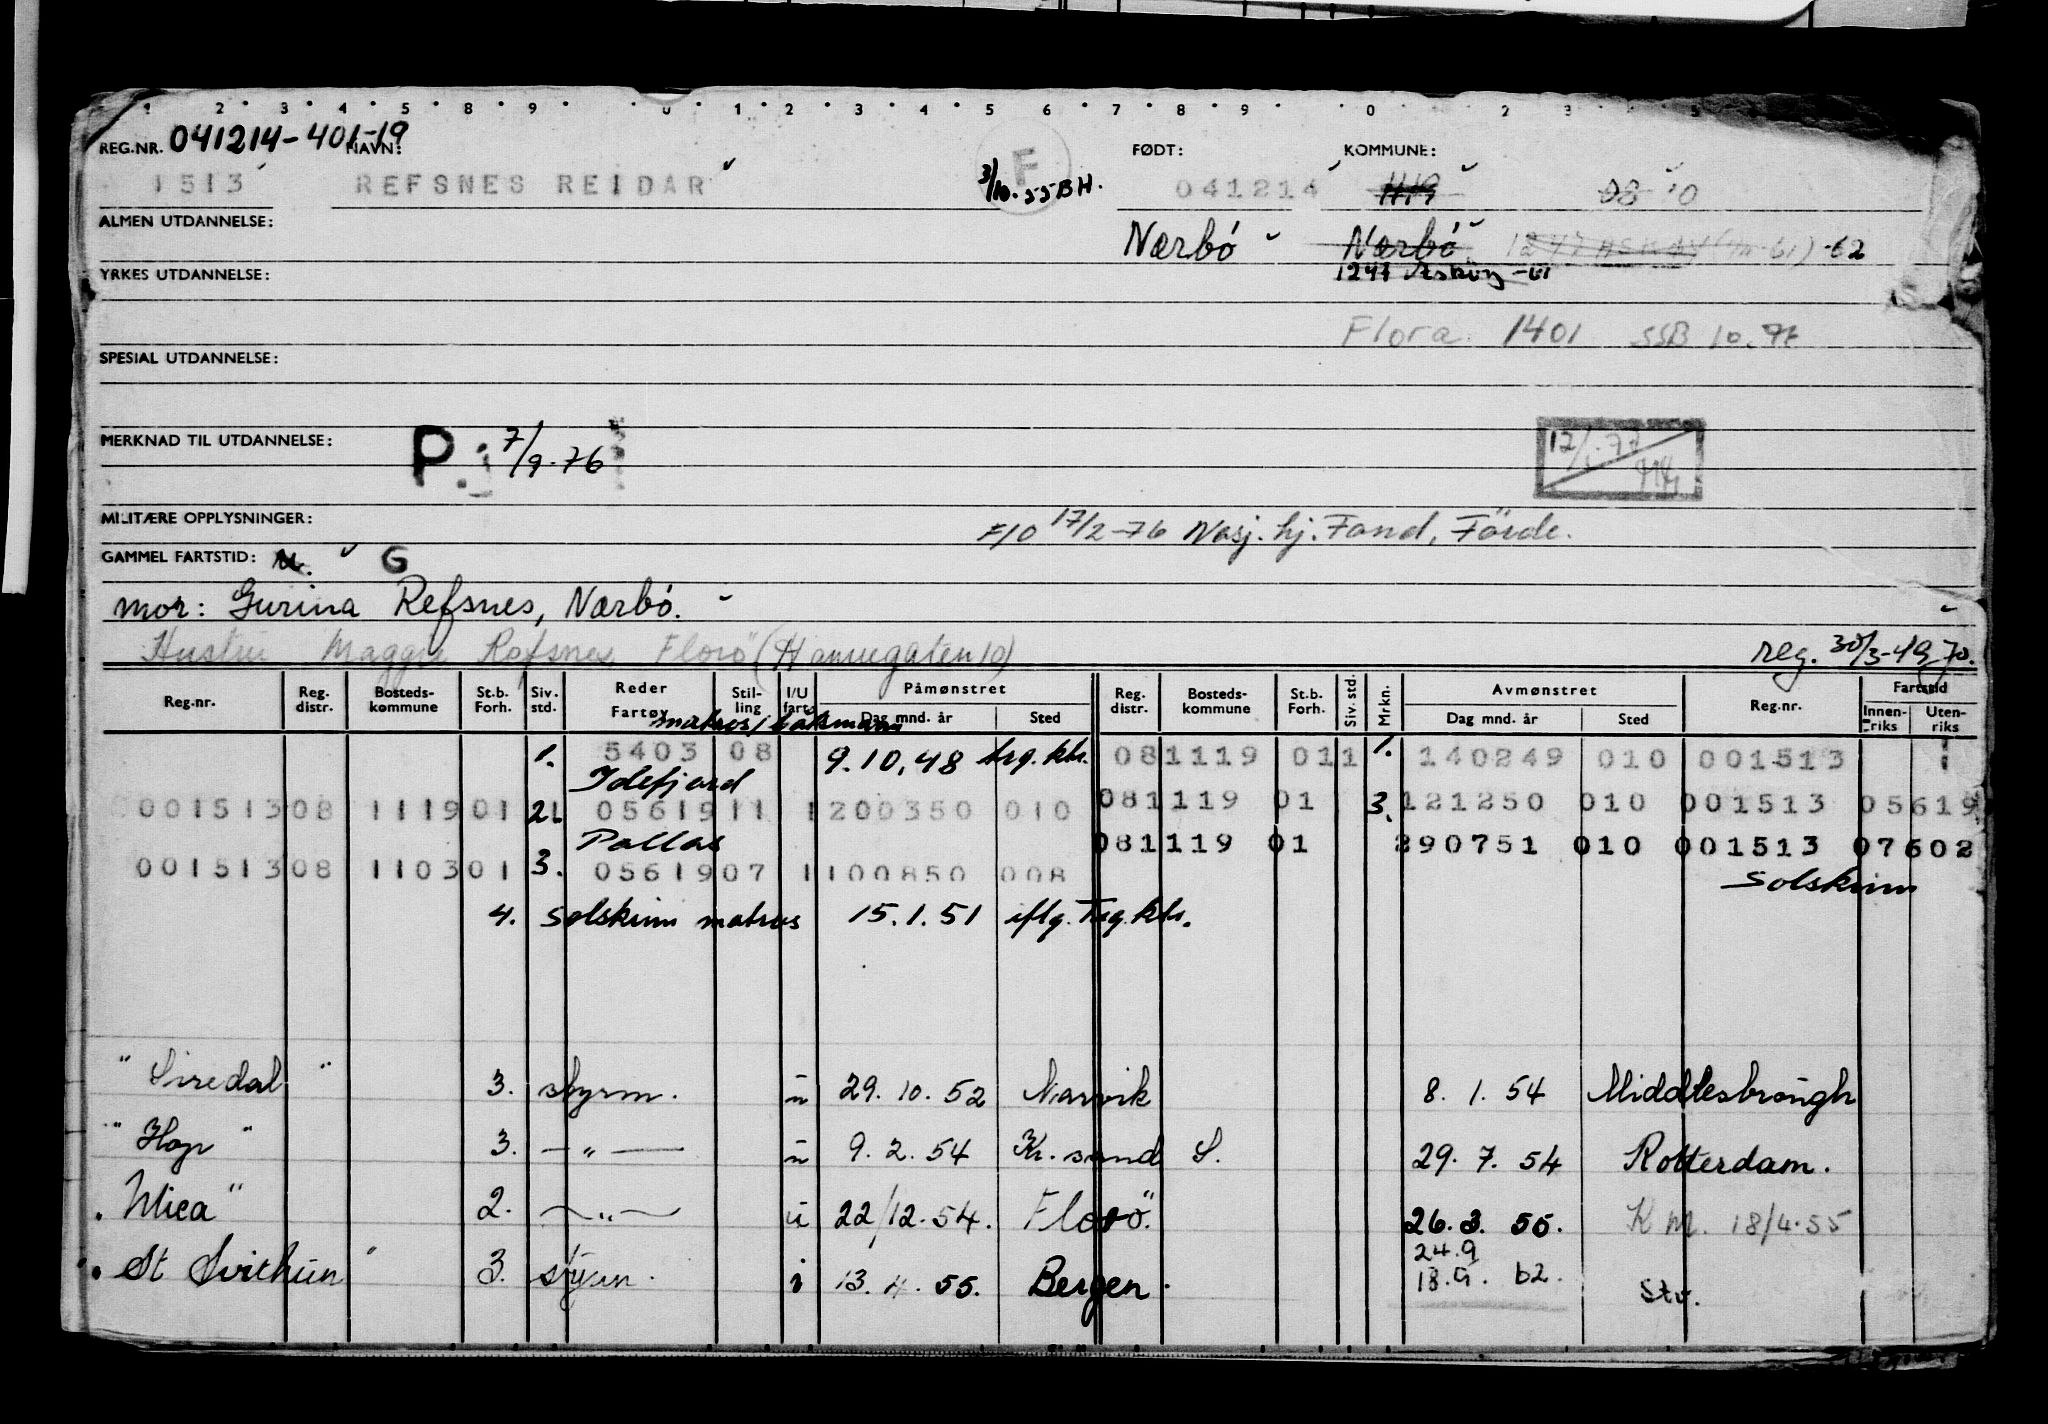 1 2 3 4 5 8 9 0 1 2 3 4 5 6 7 8 9 0 2 3
REG.NR. 041214-401-19 NAVN: FØDT: KOMMUNE:
1513 REFSNES REIDAR F 3/10.55 BH. 041214 1119 08 10
ALMEN UTDANNELSE: Nærbö Nærbö 1247 -62
YRKES UTDANNELSE: 1247 Askøy -61
Flora 1401 SSB 10.76
SPESIAL UTDANNELSE:
MERKNAD TIL UTDANNELSE: P. 7/9-76
MILITÆRE OPPLYSNINGER: F/O 17/2-76 Nasj. hj. Fond, Förde.
GAMMEL FARTSTID: G
mor: Gurina Refsnes, Nærbö.
Hustru Maggie Refsnes Florö (Havnegaten 10) reg. 30/3-49 70.
Reg.nr. Reg. distr. Bosteds-kommune St.b. Forh. Siv. std. Reder Fartøy Stil-ling I/U fart Påmønstret Dag mnd. år Sted Reg. distr. Bosteds-kommune St.b. Forh. Siv. std. Mrkn. Avmønstret Dag mnd. år Sted Reg.nr. Fartstid Innen-riks Uten-riks
matros/båtsmann
1. 5403 08 9.10.48 trg.ktr. 081119 011 1. 140249 010 001513
Idefjord
001513 08 1119 01 2. 05619 11 1 200350 010 081119 01 3. 121250 010 001513 05619
Pallas 081119 01 290751 010 001513 07602
001513 08 1103 01 3. 05619 07 1 100850 008 Solskinn
4. Solskinn matros 15.1.51 iflg. Trg.ktr.
"Siredal" 3. styrm. u 29.10.52 Narvik 8.1.54 Middlesbrough
"Hop" 3. —"— u 9.2.54 Kr.sand S. 29.7.54 Rotterdam.
"Mica" 2. —"— u 22/12.54. Florö. 26.3.55. KM. 18/4.55
24.9
"St Svithun" 3. styrm. i 13.4.55. Bergen. 62. Stv.